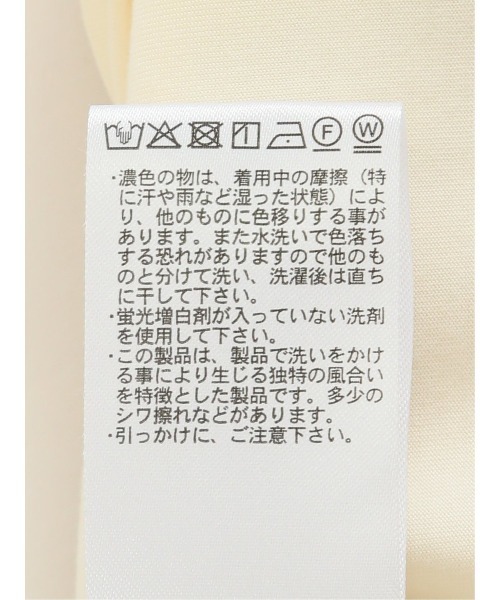 F W
・濃色の物は、着用中の摩擦（特
に汗や雨など湿った状態）によ
り、他のものに色移りする事が
あります。また水洗いで色落ち
する恐れがありますので他のも
のと分けて洗い、洗濯後は直ち
に干して下さい。
・蛍光増白剤が入っていない洗剤
を使用して下さい。
・この製品は、製品で洗いをかけ
る事により生じる独特の風合い
を特徴とした製品です。多少の
シワ擦れなどがあります。
・引っかけに、ご注意下さい。